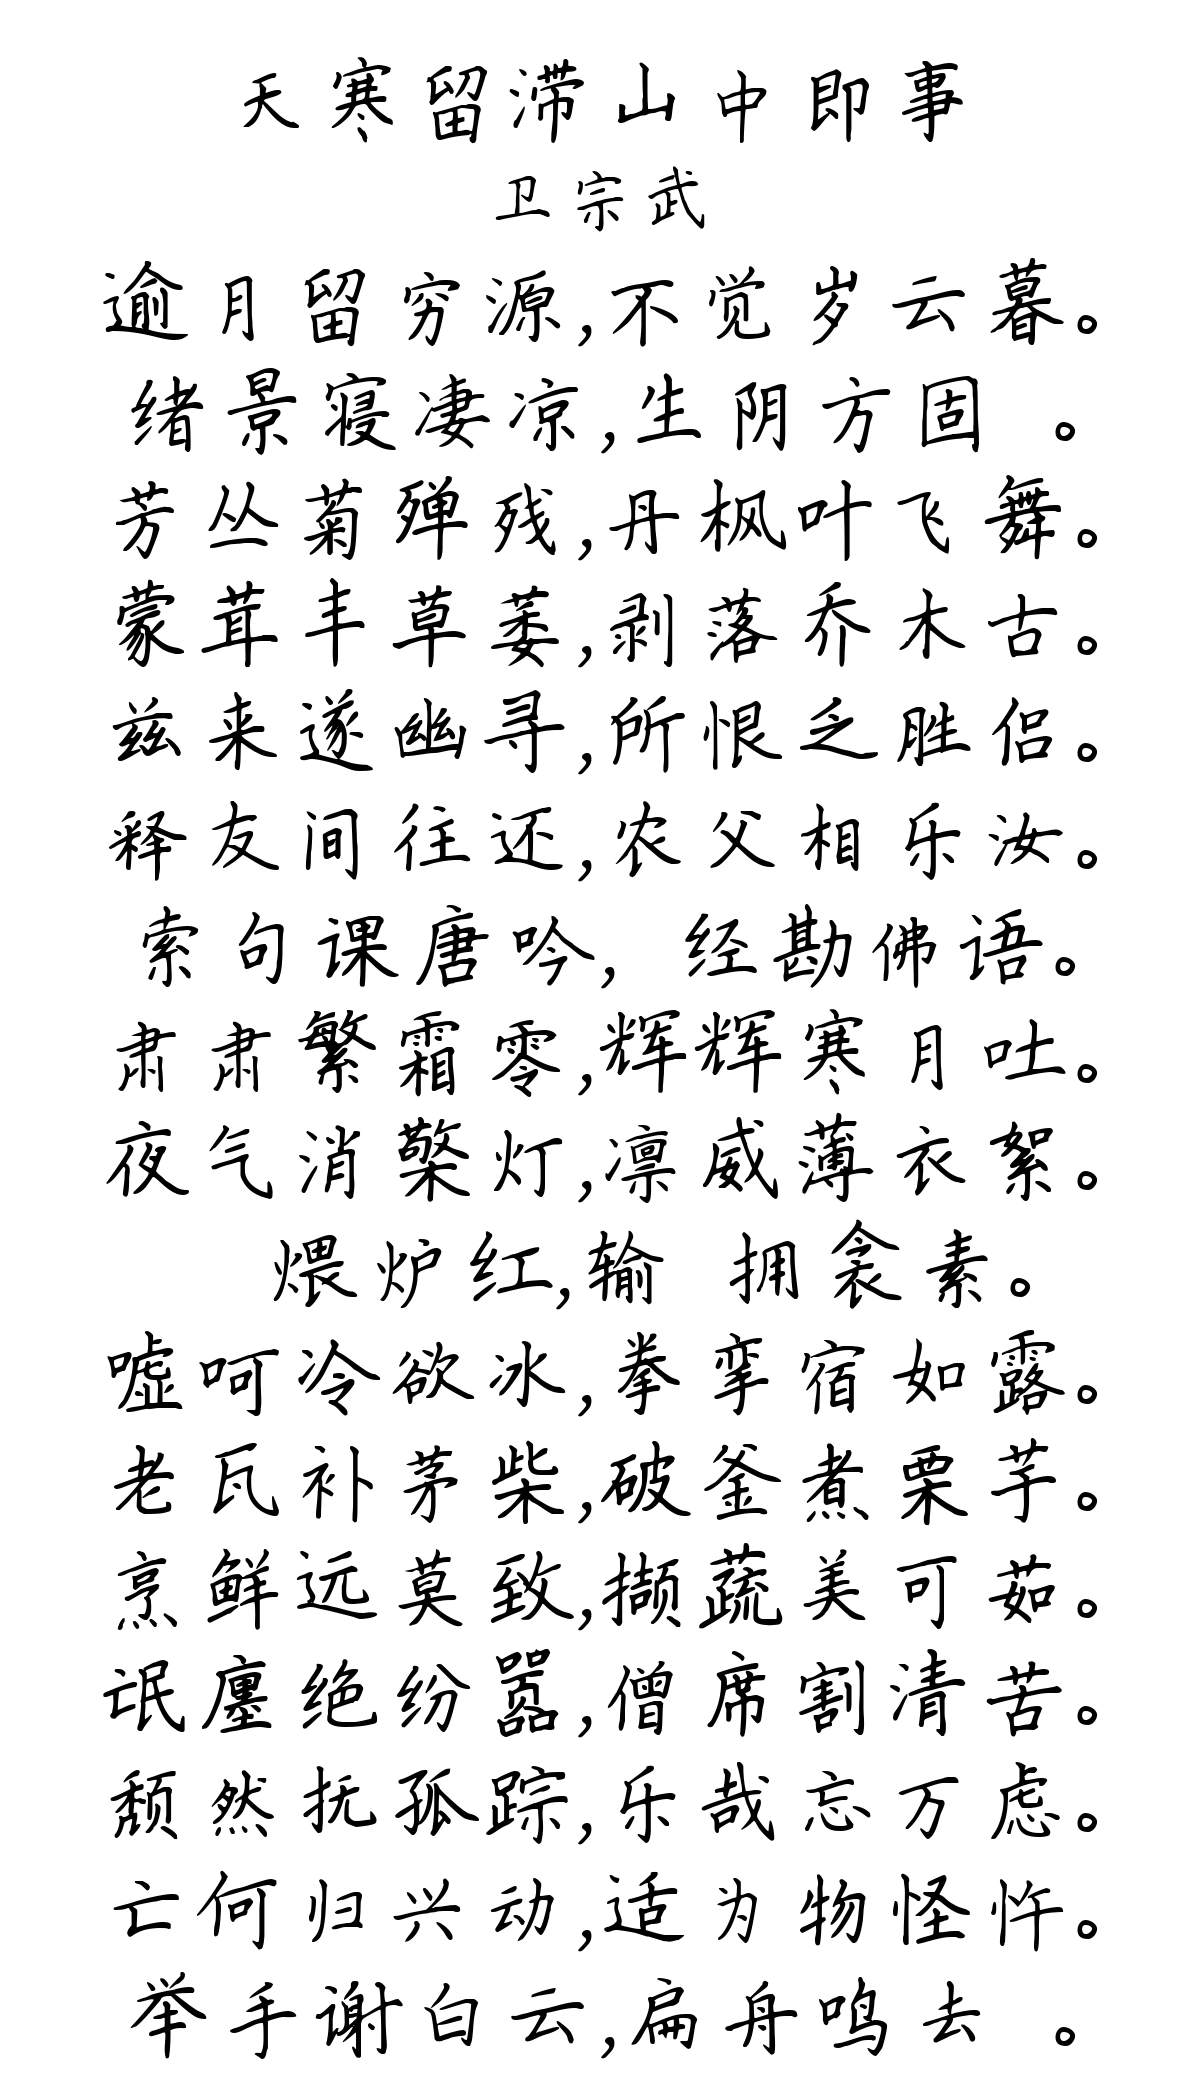 天寒留滞山中即事
卫宗武
逾月留穷源,不觉岁云暮。
绪景寝凄凉,生阴方固 。
芳丛菊殚残,丹枫叶飞舞。
蒙茸丰草萎,剥落乔木古。
兹来遂幽寻,所恨乏胜侣。
释友间往还,农父相乐汝。
索句课唐吟, 经勘佛语。
肃肃繁霜零,辉辉寒月吐。
夜气消檠灯,凛威薄衣絮。
煨炉红,输 拥衾素。
嘘呵冷欲冰,拳挛宿如露。
老瓦补茅柴,破釜煮栗芋。
烹鲜远莫致,撷蔬美可茹。
氓廛绝纷嚣,僧席割清苦。
颓然抚孤踪,乐哉忘万虑。
亡何归兴动,适为物怪忤。
举手谢白云,扁舟鸣去 。